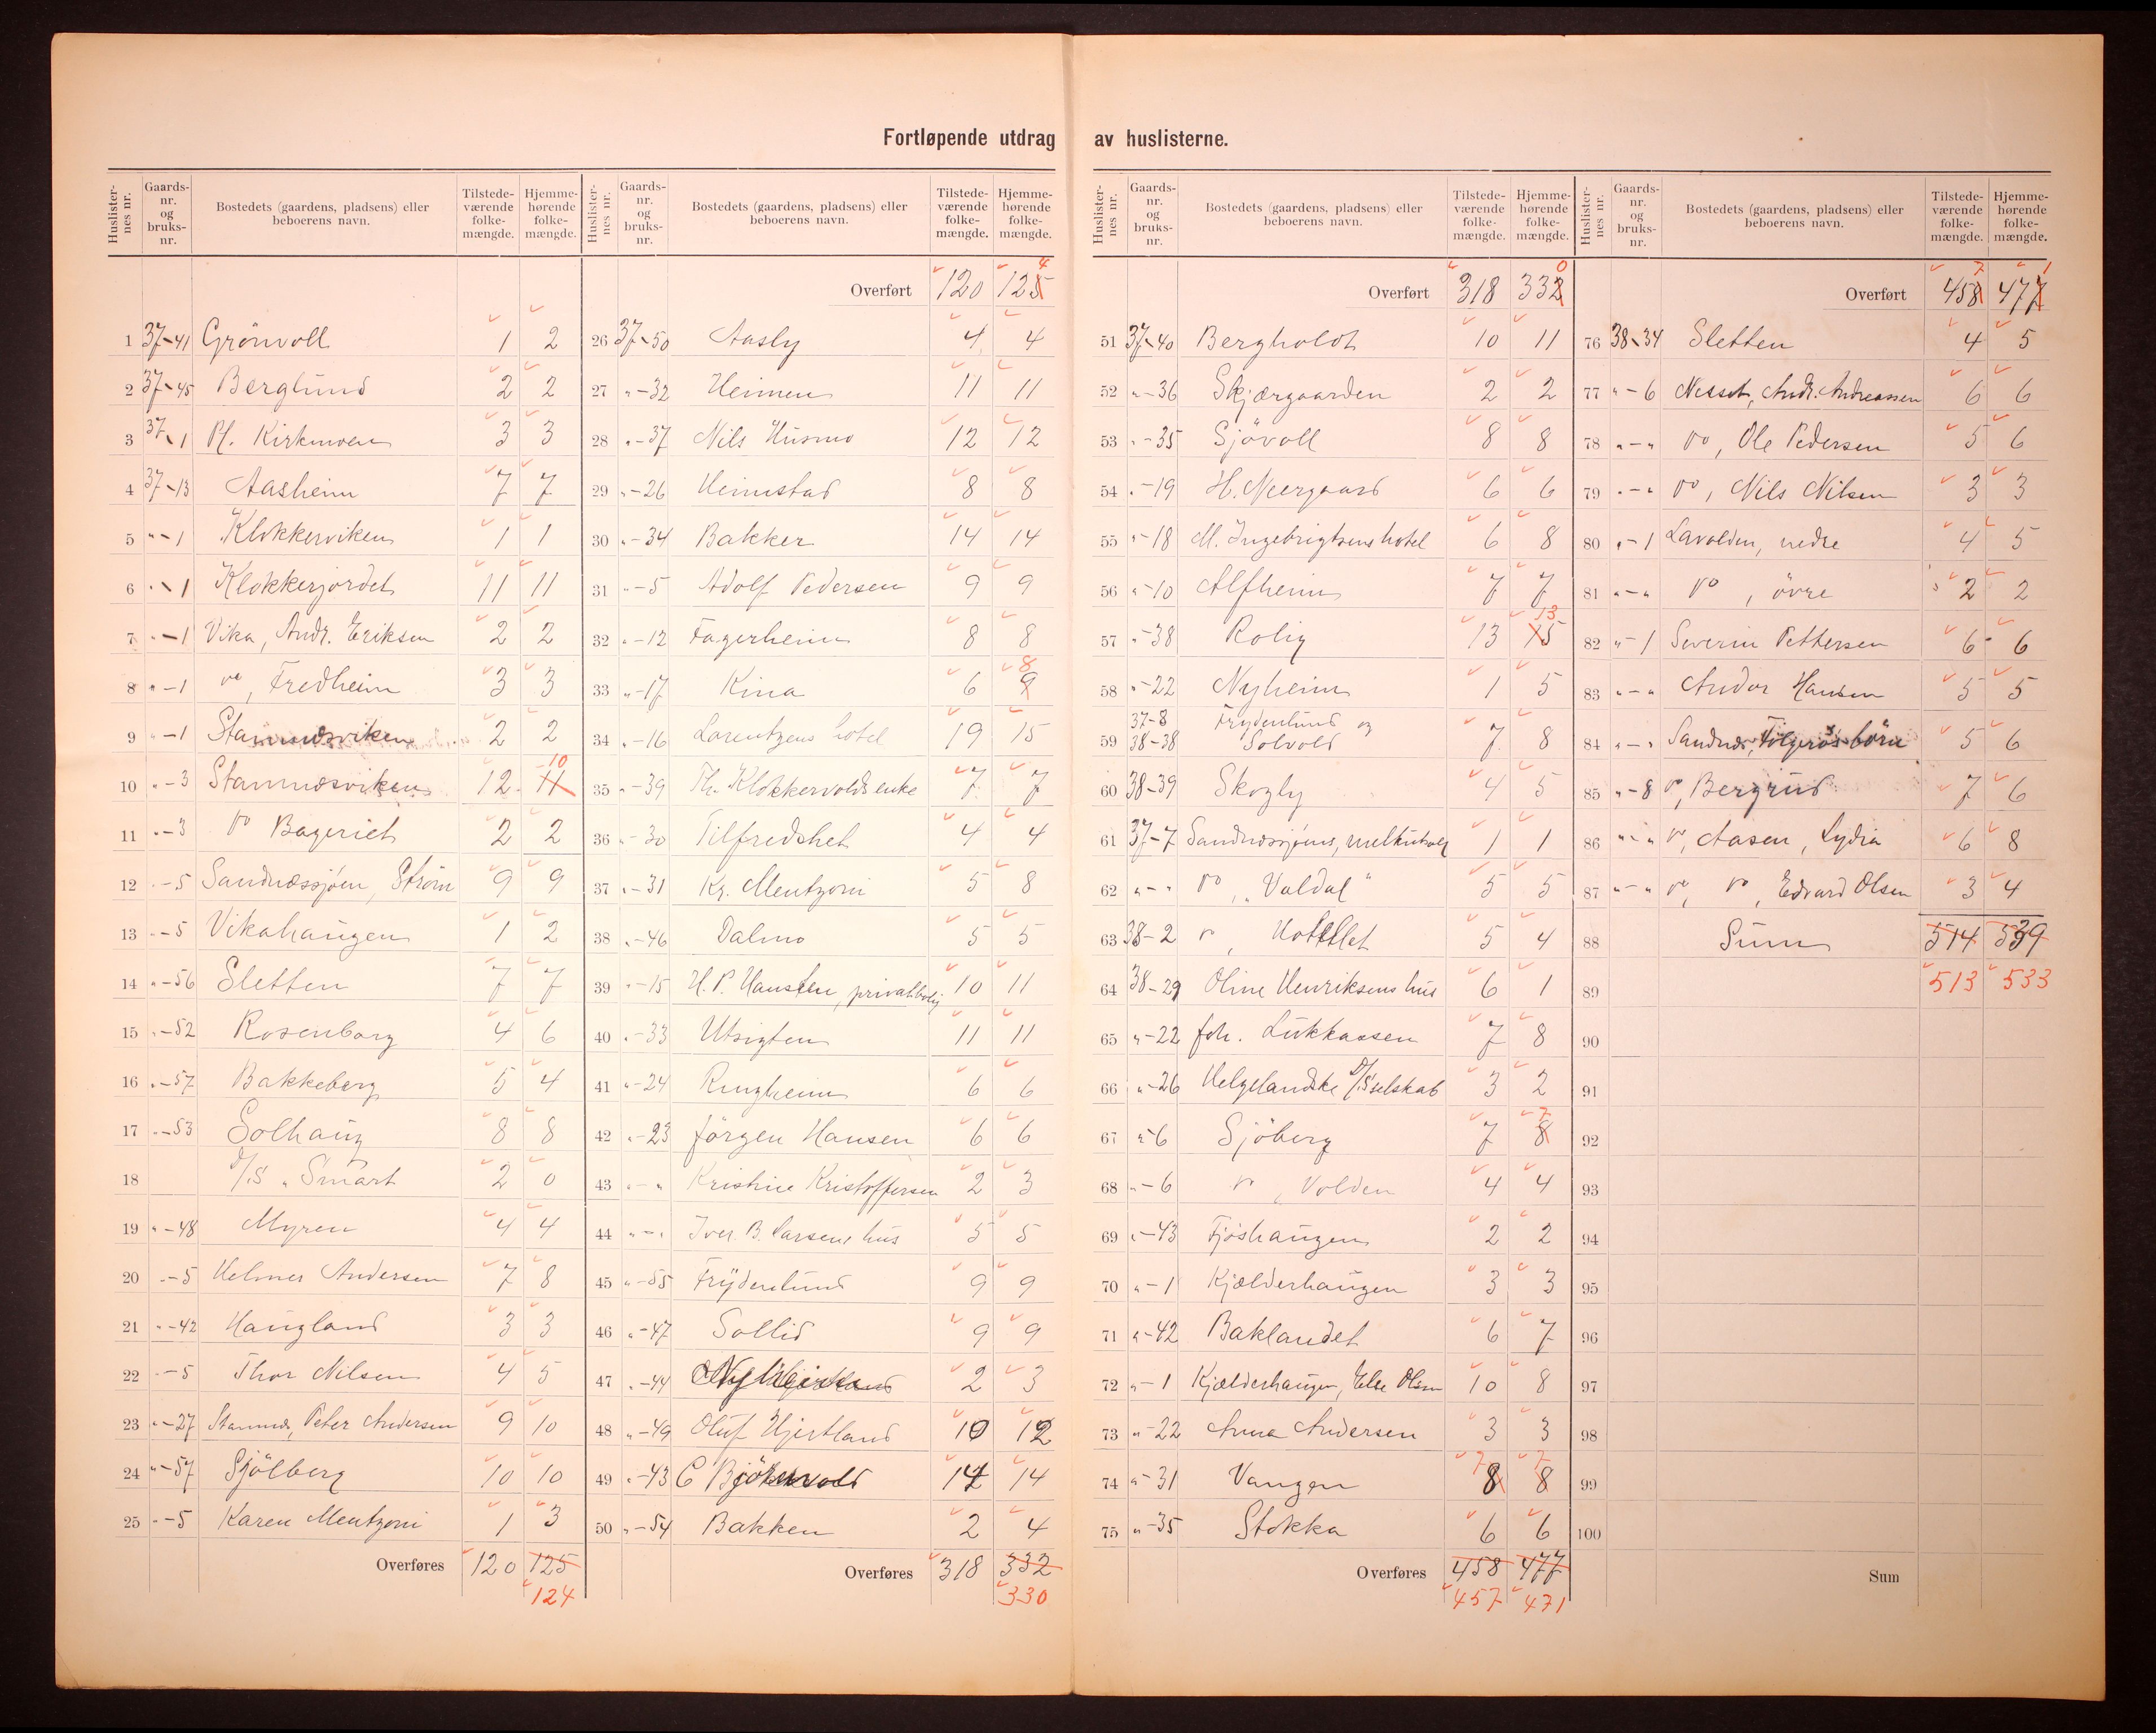 Fortløpende utdrag av huslisterne.
Huslisternes nr. Gaards-nr. og bruks-nr. Bostedets (gaardens, pladsens) eller beboerens navn. Tilstedeværende folkemængde. Hjemmehørende folkemængde.
1 37-41 Grönvoll 1 2
2 37-45 Berglund 2 2
3 37-1 Pl. Kirkmoen 3 3
4 37-13 Aasheim 7 7
5 "-1 Klokkerviken 1 1
6 "-1 Klokkerjordet 11 11
7 "-1 Vika, Andr. Eriksen 2 2
8 "-1 do, Fredheim 3 3
9 "-1 Stamnesviken 2 2
10 "-3 Stamnesviken 12 11 10
11 "-3 do Bageriet 2 2
12 "-5 Sandnæssjøen, Ström 9 9
13 "-5 Vikahaugen 1 2
14 "-56 Sletten 7 7
15 "-52 Rosenborg 4 6
16 "-57 Bakkeberg 5 4
17 "-53 Solhaug 8 8
18 D/S "Smart 2 0
19 "-48 Myren 4 4
20 "-5 Helmer Andersen 7 8
21 "-42 Haugland 3 3
22 "-5 Thor Nilsen 4 5
23 "-27 Stamnes, Peter Andersen 9 10
24 "-57 Sjölberg 10 10
25 "-5 Karen Mentzoni 1 3
Overføres 120 125
124
Huslisternes nr. Gaards-nr. og bruks-nr. Bostedets (gaardens, pladsens) eller beboerens navn. Tilstedeværende folkemængde. Hjemmehørende folkemængde.
Overført 120 125 4
26 37-50 Aasly 4 4
27 "-32 Heimen 11 11
28 "-37 Nils Husmo 12 12
29 "-26 Heimstad 8 8
30 "-34 Bakker 14 14
31 "-5 Adolf Pedersen 9 9
32 "-12 Fagerheim 8 8
33 "-17 Kina 6 9 8
34 "-16 Lorentzens hotel 19 15
35 "-39 Th. Klokkervolds enke 7 7
36 "-30 Tilfredshet 4 4
37 "-31 Kr. Mentzoni 5 8
38 "-46 Dalmo 5 5
39 "-15 H. P. Hansten, privatbolig 10 11
40 "-33 Utsigten 11 11
41 "-24 Ringheim 6 6
42 "-23 Jörgen Hansen 6 6
43 "-" Kristine Kristoffersen 2 3
44 "-" Iver B. Larsens hus 5 5
45 "-55 Frydenlund 9 9
46 "-47 Sollid 9 9
47 "-44 2 3
48 "-49 Oluf Hjertland 10 12
49 "-43 C 14 14
50 "-54 Bakken 2 4
Overføres 318 332
330
Huslisternes nr. Gaards-nr. og bruks-nr. Bostedets (gaardens, pladsens) eller beboerens navn. Tilstedeværende folkemængde. Hjemmehørende folkemængde.
Overført 318 332 0
51 37-40 Bergholdt 10 11
52 "-36 Skjærgaarden 2 2
53 "-35 Sjövoll 8 8
54 "-19 H. Neergaard 6 6
55 "-18 M. Ingebrigtsens hotel 6 8
56 "-10 Alfheim 7 7
57 "-38 Rolig 13 15 13
58 "-22 Nyheim 1 5
59 37-8 38-38 Frydenlund og Solvold 7 8
60 38-39 Skogly 4 5
61 37-7 Sandnæssjøens, melkutsalg 1 1
62 "-" do, "Valdal" 5 5
63 38-2 do, Hotellet 5 4
64 38-29 Oline Henriksens hus 6 1
65 "-22 Joh. Lukkassen 7 8
66 "-26 Helgelandske D/S selskab 3 2
67 "-6 Sjöberg 7 8 7
68 "-6 do, Volden 4 4
69 "-43 Fjöshaugen 2 2
70 "-1 Kjælderhaugen 3 3
71 "-42 Baklandet 6 7
72 "-1 Kjælderhaugen, Else Olsen 10 8
73 "-22 Anna Andersen 3 3
74 "-31 Vangen 8 7 8 7
75 "-35 Stokka 6 6
Overføres 458 477
457 471
Huslisternes nr. Gaards-nr. og bruks-nr. Bostedets (gaardens, pladsens) eller beboerens navn. Tilstedeværende folkemængde. Hjemmehørende folkemængde.
Overført 458 7 477 1
76 38-34 Sletten 4 5
77 "-6 Nesset, Andr. Andreassen 6 6
78 "-" do, Ole Pedersen 5 6
79 "-" do, Nils Nilsen 3 3
80 "-1 Lavolden, nedre 4 5
81 "-" do, övre 2 2
82 "-1 Severin Pettersen 6 6
83 "-" Andor Hansen 5 5
84 "-" Sandnes, börn 5 6
85 "-8 do, Bergrud 7 6
86 "-" do, Aasen, Lydia 6 8
87 "-" do, do, Edvard Olsen 3 4
88 Sum 514 539
89 513 533
90
91
92
93
94
95
96
97
98
99
100
Sum